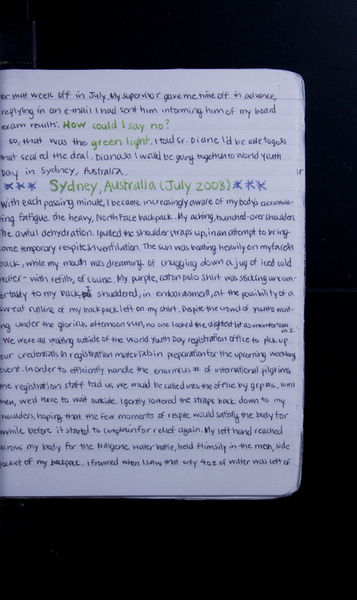 for that week off in July. My supervisor gave me time off in advance,
replying in an e-mail I had sent him informing him of my board
exam results. How could I say no?
So, that was the green light. I told Sr. Diane I'd be able to go &
that sealed the deal. Diana & I would be going together to World Youth
Day in Sydney, Australia.
*** Sydney, Australia (July 2008) ***
With each passing minute, I became increasingly aware of my body's accumula-
ting fatigue. The heavy, North Face backpack. My aching, hunched-over shoulders.
The awful dehydration. I pulled the shoulder straps up, in an attempt to bring
some temporary respite & ventilation. The sun was beating heavily on my face &
back, while my mouth was dreaming of chugging down a jug of iced cold
water - with refills, of course. My purple, cotton polo shirt was sticking uncom-
fortably to my back. I shuddered, in embarrassment, at the possibility of a
sweat outline of my backpack left on my shirt. Despite the crowd of youths wait-
ing under the glorious afternoon sun, no one looked the slightest bit as uncomfortable
as I.
We were all waiting outside of the World Youth Day registration office to pick up
our credentials & registration materials in preparation for the upcoming weeklong
event. In order to efficiently handle the enormous # of international pilgrims,
the registration staff told us we would be called into the office by groups. Until
then, we'd have to wait outside. I gently lowered the straps back down to my
shoulders, hoping that the few moments of respite would satisfy the body for
awhile before it started to complain for relief again. My left hand reached
across my body for the Nalgene water bottle, held flimsily in the mesh, side
pocket of my backpack. I frowned when I saw that only 4 oz of water was left of